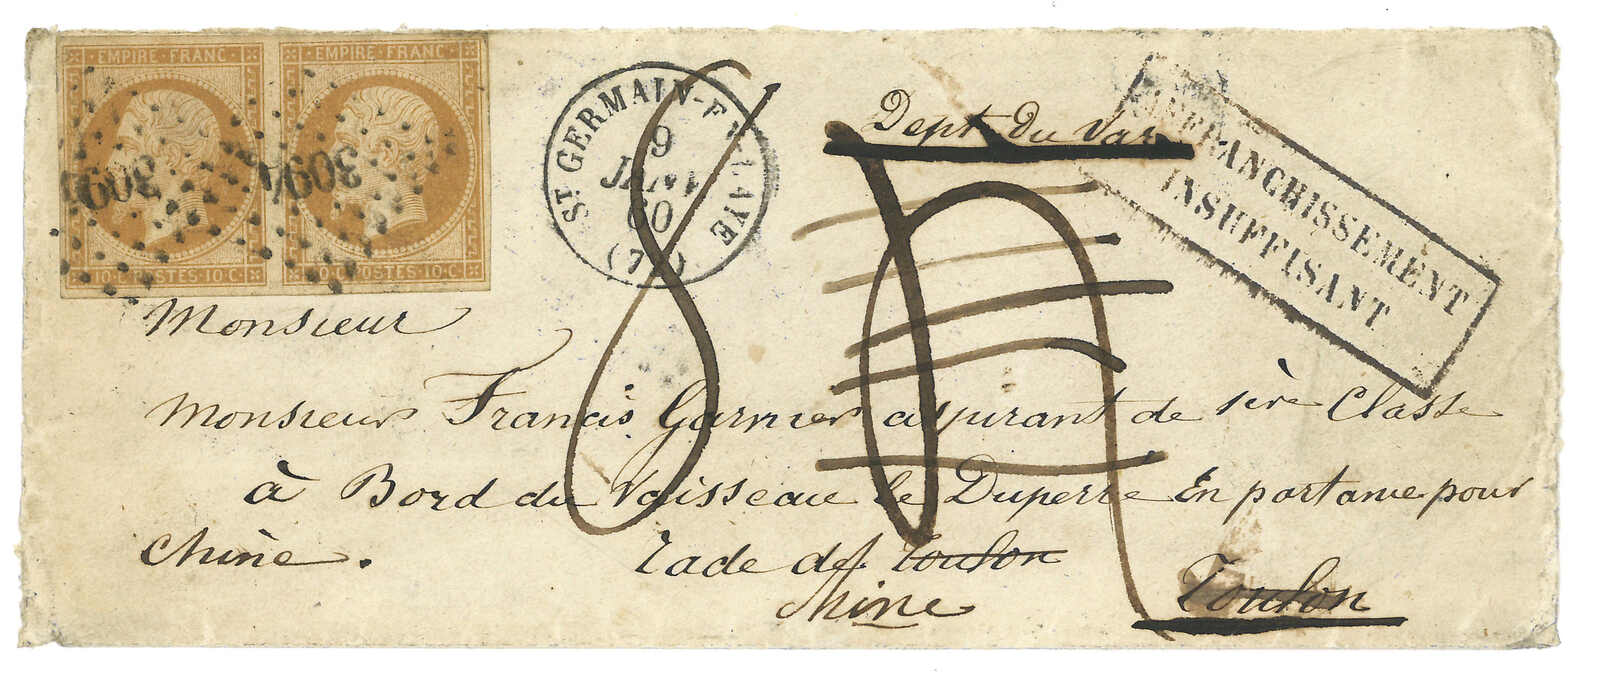 EMPIRE·FRANC· EMPIRE·FRANC·
3094 3094
10·C·POSTES·10·C· 10·C·POSTES·10·C·
ST GERMAIN-
LAYE
9
JANV
60
8
Dept Du Var
AFFRANCHISSEMENT
INSUFFISANT
Monsieur
Monsieur Francis Garnier aspirant de 1ère Classe
à Bord du Vaisseau le Duperré En partance pour
Chine. rade de Toulon
Chine
Toulon